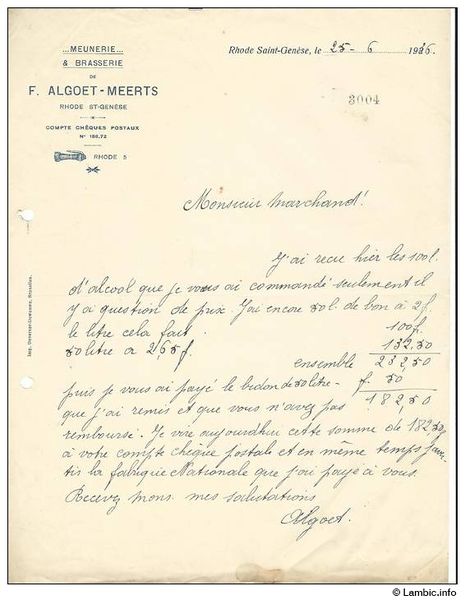 ...MEUNERIE...
& BRASSERIE
DE
F. ALGOET-MEERTS
RHODE ST-GENÈSE
COMPTE CHÈQUES POSTAUX
N° 188,72
RHODE 5
Rhode Saint-Genèse, le 25-6 1936.
3004
Monsieur Marchand!
J'ai recu hier les 100 l.
d'alcool que je vous ai commandé seulement il
y ai question de prix. J'ai encore 50 l. de bon à 2f.
le litre cela fait 100f.
50 litre a 2.65f. 132,50
ensemble 232,50
puis je vous ai payé le bidon de 50 litre - f. 50
que j'ai remis et que vous n'avez pas 182,50
remboursé. Je vire aujourd'hui cette somme de 182.50
à votre compte chèque postale et en même temps j'aver-
tis la fabrique Nationale que j'ai payé à vous.
Recevez Mons. mes salutations
Algoet.
© Lambic.info